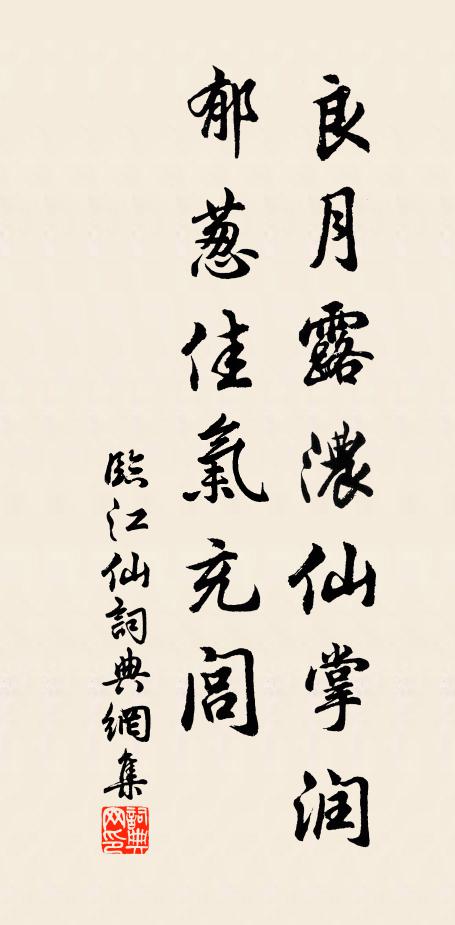 良月露濃仙掌润
郁葱佳氣充闾
臨江仙詞典網集
詞典網印